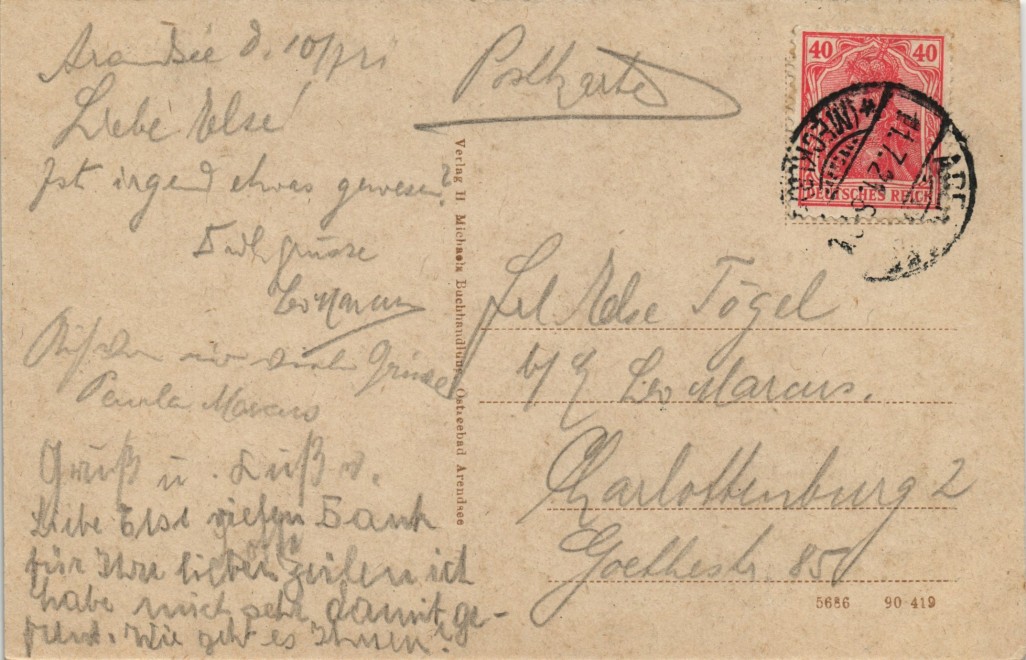 Arendsee d. 10/7 21
Liebe Else!
Ist irgend etwas gewesen?
Viele Grüsse
Leo Marcus
viele Grüsse
Paula Marcus
Gruß u. Kuß v.
Liebe Else vielen Dank
für Ihre lieben Zeilen ich
habe mich sehr damit ge-
freut. Wie geht es Ihnen?
Verlag H. Michaels Buchhandlung, Ostseebad Arendsee
Postkarte
40 40
DEUTSCHES REICH
(MECK
11.7.21
Frl Else Tögel
b/ H Leo Marcus.
Charlottenburg 2
Goethestr. 85
5686 90 419